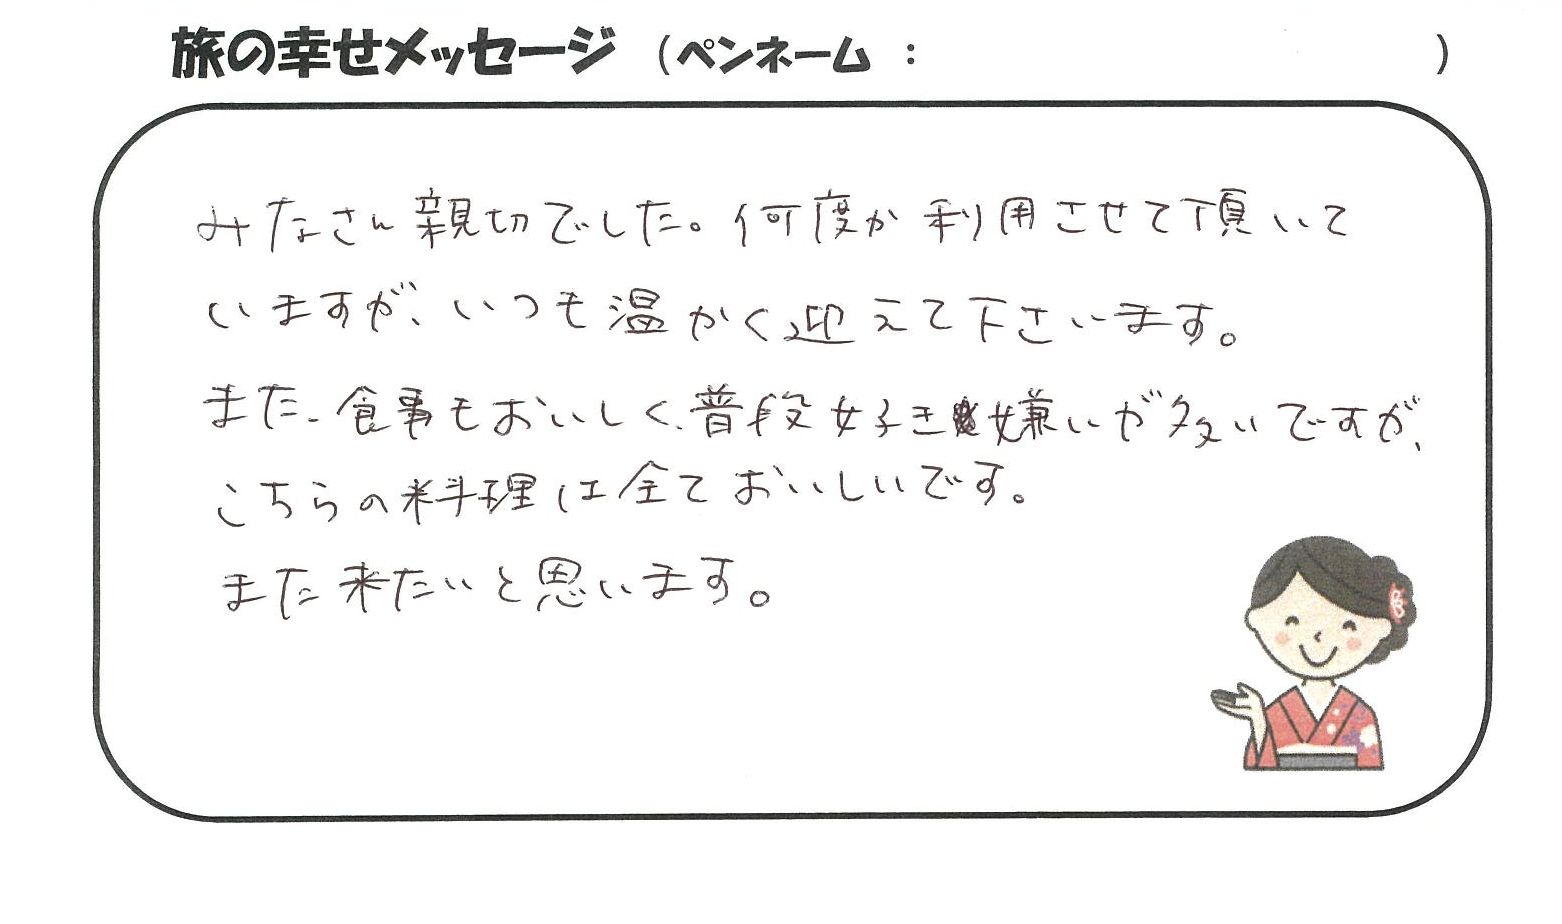 旅の幸せメッセージ (ペンネーム : )
みなさん親切でした。何度か利用させて頂いて
いますが、いつも温かく迎えて下さいます。
また、食事もおいしく、普段好き嫌いが多いですが、
こちらの料理は全ておいしいです。
また来たいと思います。